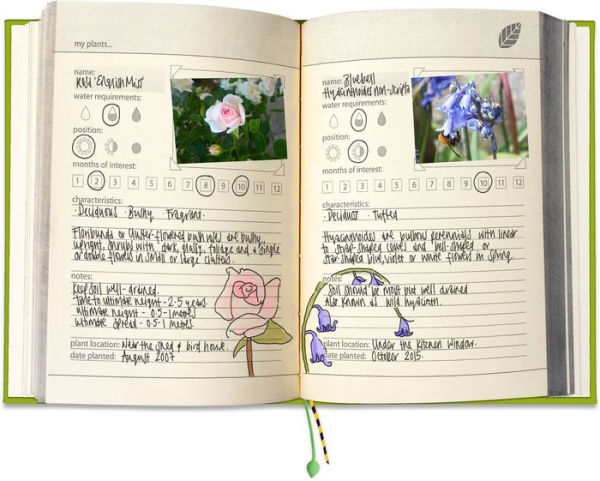 my plants...
name:
Rosa 'English Miss'
water requirements:
position:
months of interest:
1 2 3 4 5 6 7 8 9 10 11 12
characteristics:
Deciduous · Bushy · Fragrant·
Floribunda or cluster-flowered bush roses are bushy,
upright shrubs with dark, glossy foliage and a single
or double flowers in small or large clusters.
notes:
Keep soil well-drained.
Time to ultimate height - 2-5 years.
ultimate height - 0.5-1 metres
ultimate spread - 0.5-1 metres.
plant location: Near the shed & bird house.
date planted: August 2007
name: Bluebell
Hyacinthoides non-scripta
water requirements:
position:
months of interest:
1 2 3 4 5 6 7 8 9 10 11 12
characteristics:
Tufted
Hyacinthoides are bulbous perennials with linear
to strap-shaped leaves and bell-shaped or
star-shaped blue, violet or white flowers in spring.
notes:
Soil should be moist but well drained
Also known as wild hyacinth.
plant location: Under the kitchen window.
date planted: October 2015.